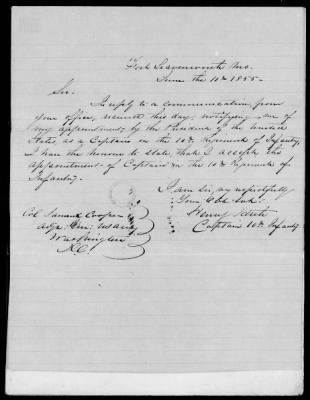 Fort Leavenworth Mo.
June the 11th 1855.
Sir.
In reply to a communication, from
your office, received this day, notifying me of
my appointment, by the President of the United
States, as a Captain in the 10th Regiment of Infantry,
I have the honour to state, that I accept the
appointment of Captain in the 10th Regiment of
Infantry.
I am Sir, very respectfully
Your Obt Svt.
Henry
Captain 10th Infantry
Col Samuel Cooper
Adjt. Gen: US Army
Washington
D.C.